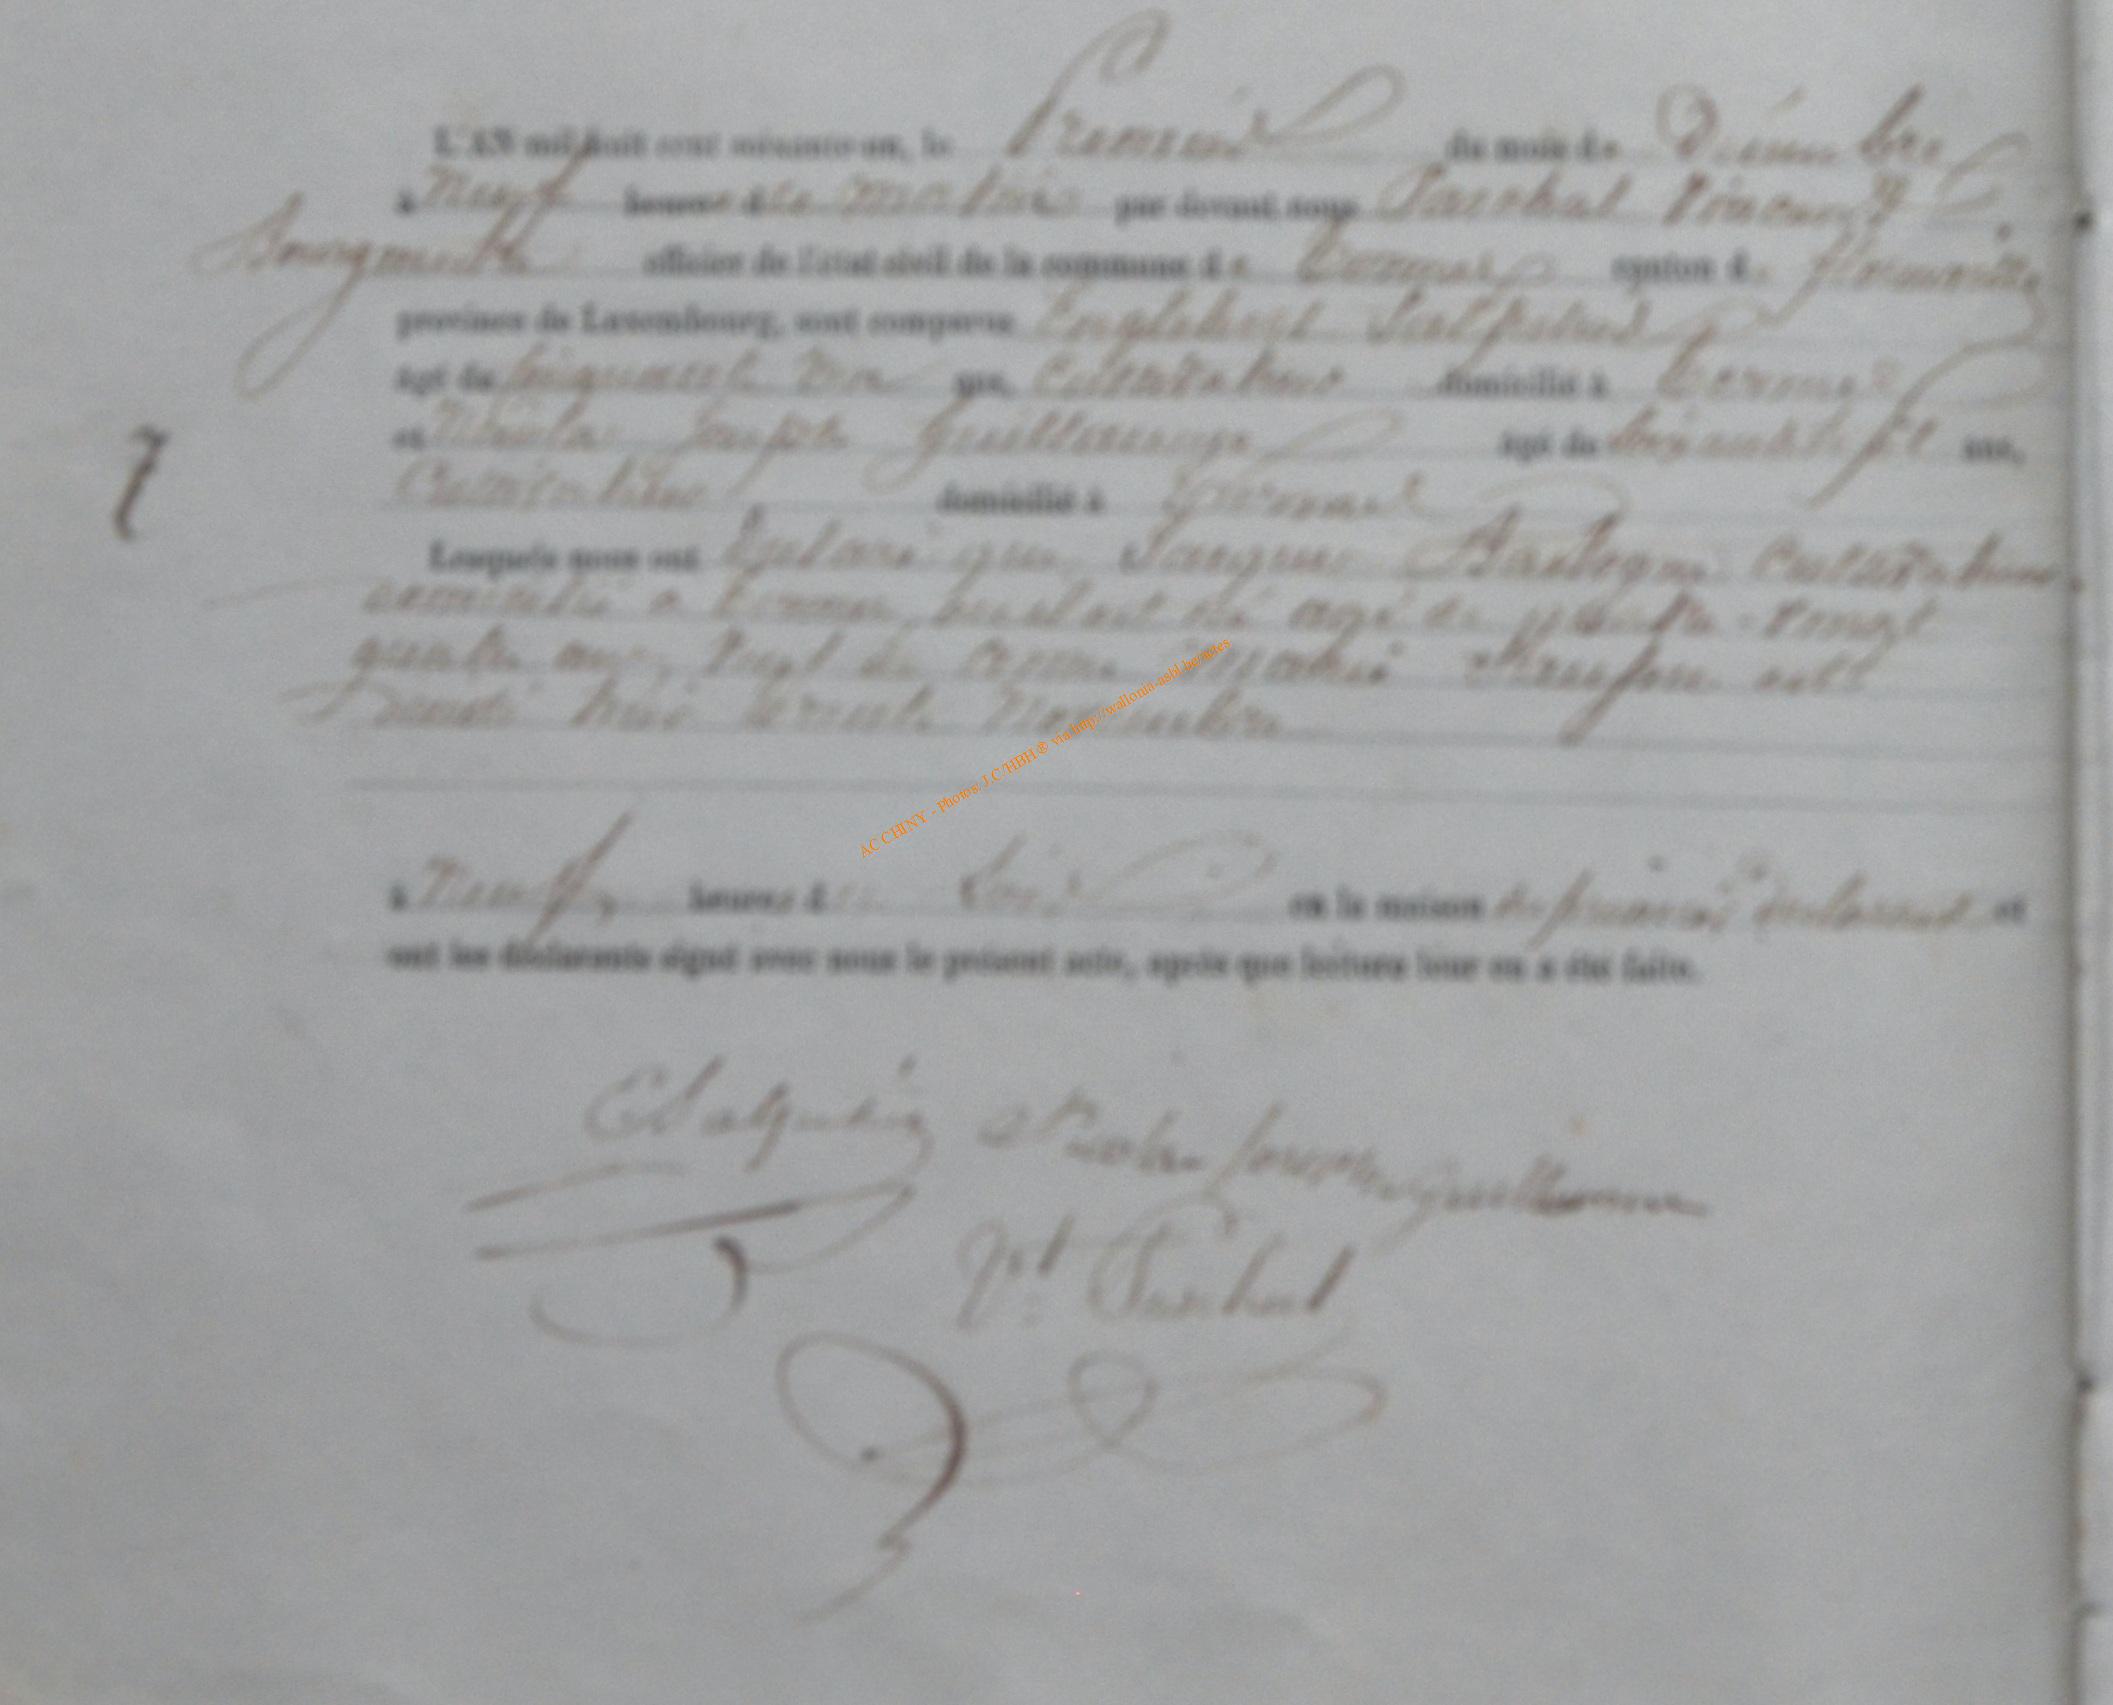 L'AN mil huit cent soixante-un, le Premier du mois de Décembre
à Neuf heures du matin par devant nous Paschal Vincent
Bourgmestre officier de l'état civil de la commune de Termes canton de Florenville
province de Luxembourg, sont comparus Englebert
âgé de cinquante ans, Cultivateur domicilié à Termes
et Nicolas Joseph Guillaume âgé de ans,
Cultivateur domicilié à Termes
Lesquels nous ont déclaré que Jacques Cultivateur
domicilié à Termes est âgé de quatre-vingt
quatre ans, de est
décédé hier trente Novembre
AC CHINY - Photos: J.C/HBH® via http://wallonia-asbl.be/actes
à Neuf heures du Soir en la maison du premier déclarant et
ont les déclarants signé avec nous le présent acte, après que lecture leur en a été faite.
Nicolas joseph guillaume
Vt Paschal